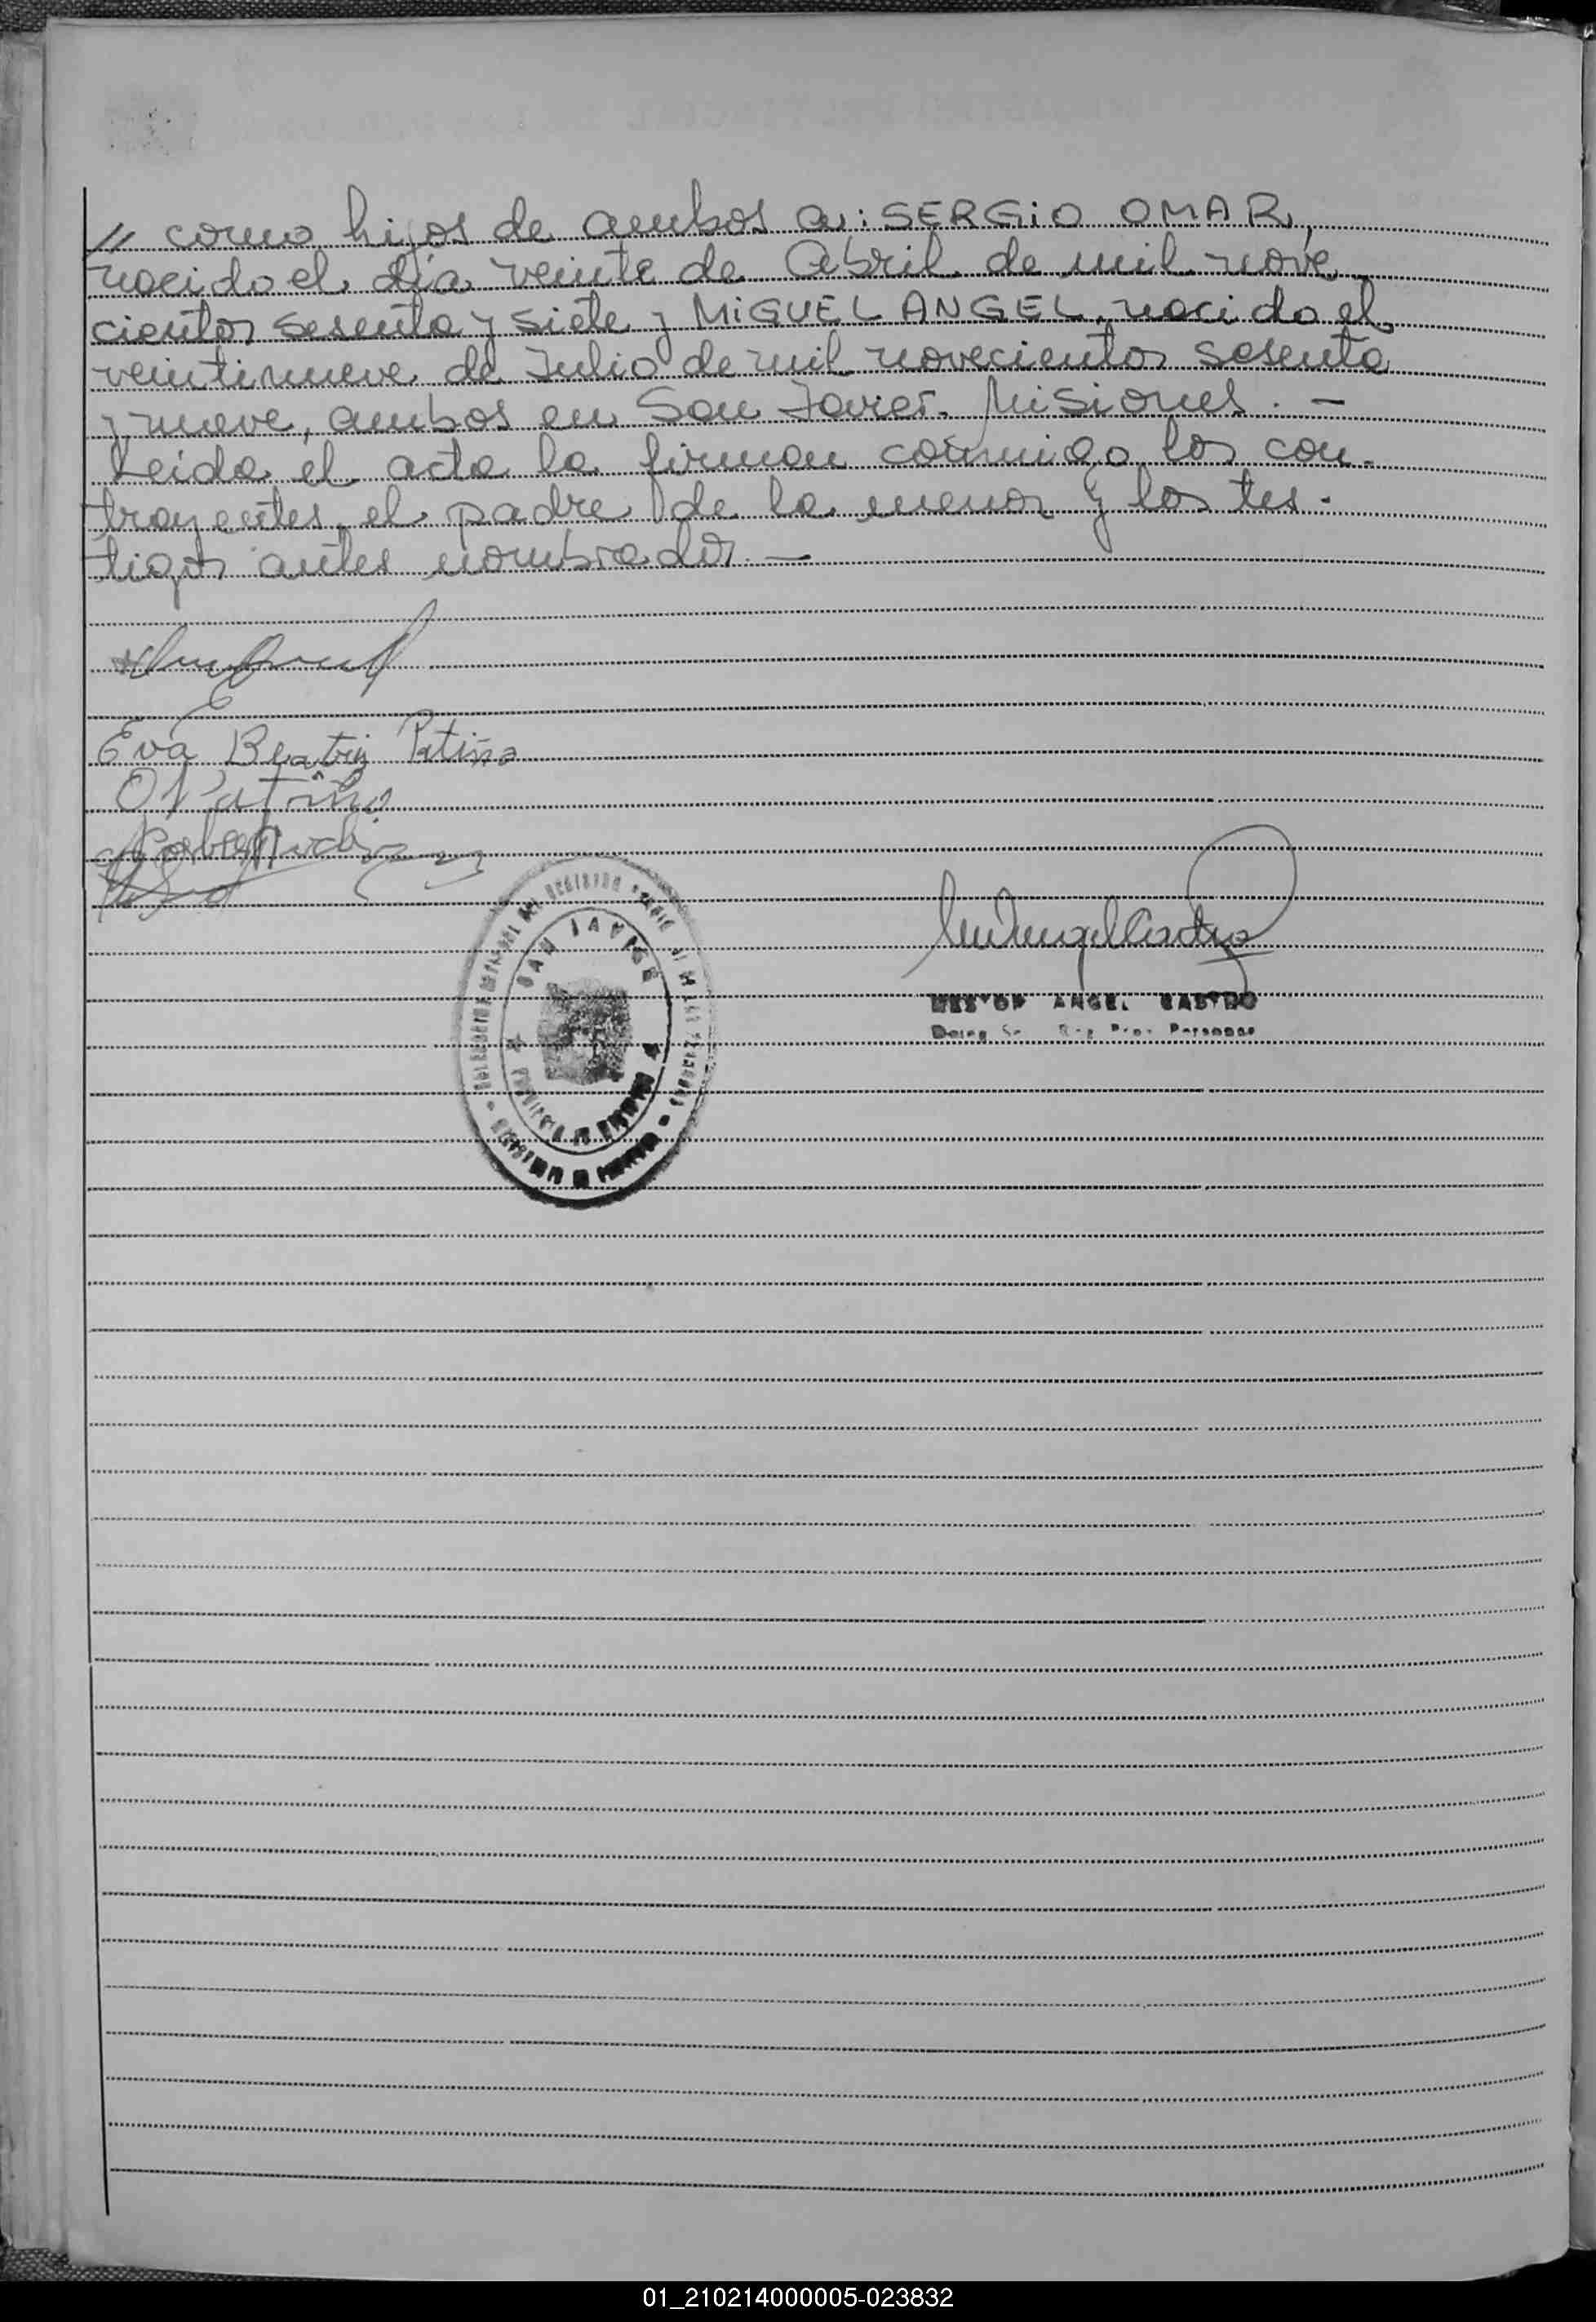 // como hijos de ambos a: SERGIO OMAR,
nacido el día veinte de Abril de mil nove
cientos sesenta y siete y MIGUEL ANGEL, nacido el
veintinueve de Julio de mil novecientos sesenta
y nueve, ambos en San Javier. Misiones. —
Leida el acta la firman conmigo los con-
trayentes, el padre de la menor y los tes-
tigos antes nombrados. —
Eva Beatriz Patiño
O Patiño
SAN JAVIER
NESTOR ANGEL CASTRO
Personas
01_210214000005-023832